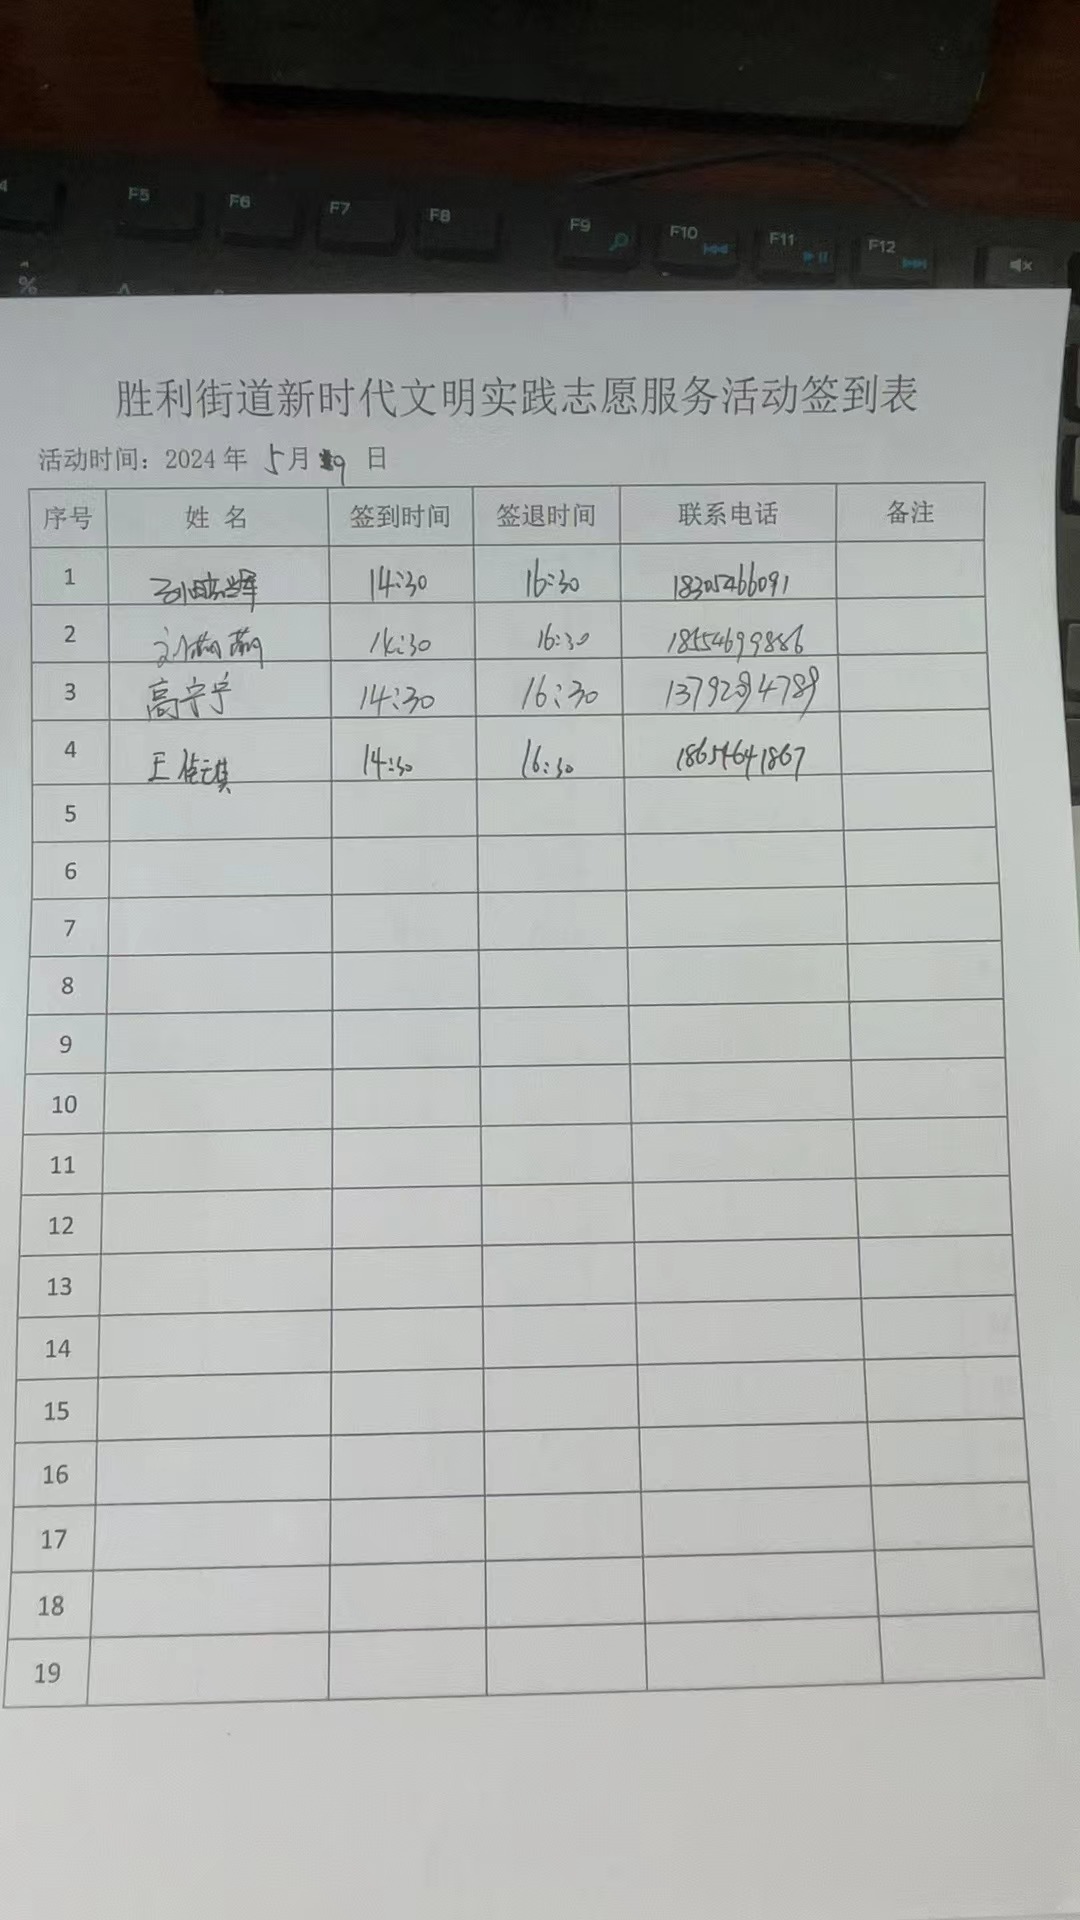 F5 F6 F7 F8 F9 F10 F11 F12
%
胜利街道新时代文明实践志愿服务活动签到表
活动时间：2024 年 5月 9 日
序号 姓 名 签到时间 签退时间 联系电话 备注
1 14:30 16:30 18305466091
2 刘萌萌 14:30 16:30 18554699886
3 高宁宁 14:30 16:30 13792094789
4 王 14:30 16:30 18654641867
5
6
7
8
9
10
11
12
13
14
15
16
17
18
19